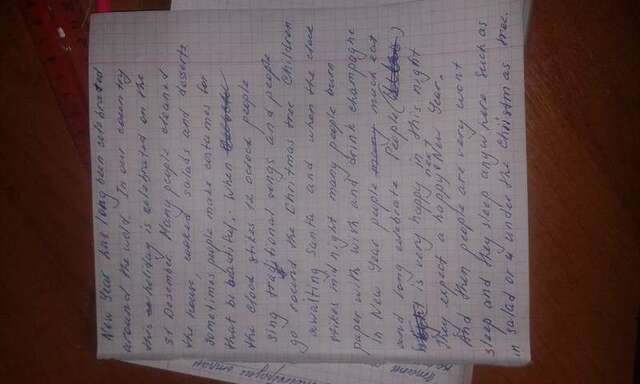 New Year has long been selebrated
around the wold. In our country
this holiday is selebrated on the
31 Desember. Many people cleaned
the house, cooked salads and desserts
Sometimes people make costumes for
that is beautiful. When
the clock stikes 12 oclock people
sing traditional songs and people
go round the Christmas tree Children
awaiting Santa and when the clock
stikes mid night many people burn
paper with wish and drink champaghe
In New Year people much eat
and long celebrate People
is very happy in this night
They expect a happy next New Year.
And then people are very wont
sleep and they sleep anywhere such as
in salad or under the Christmas tree.